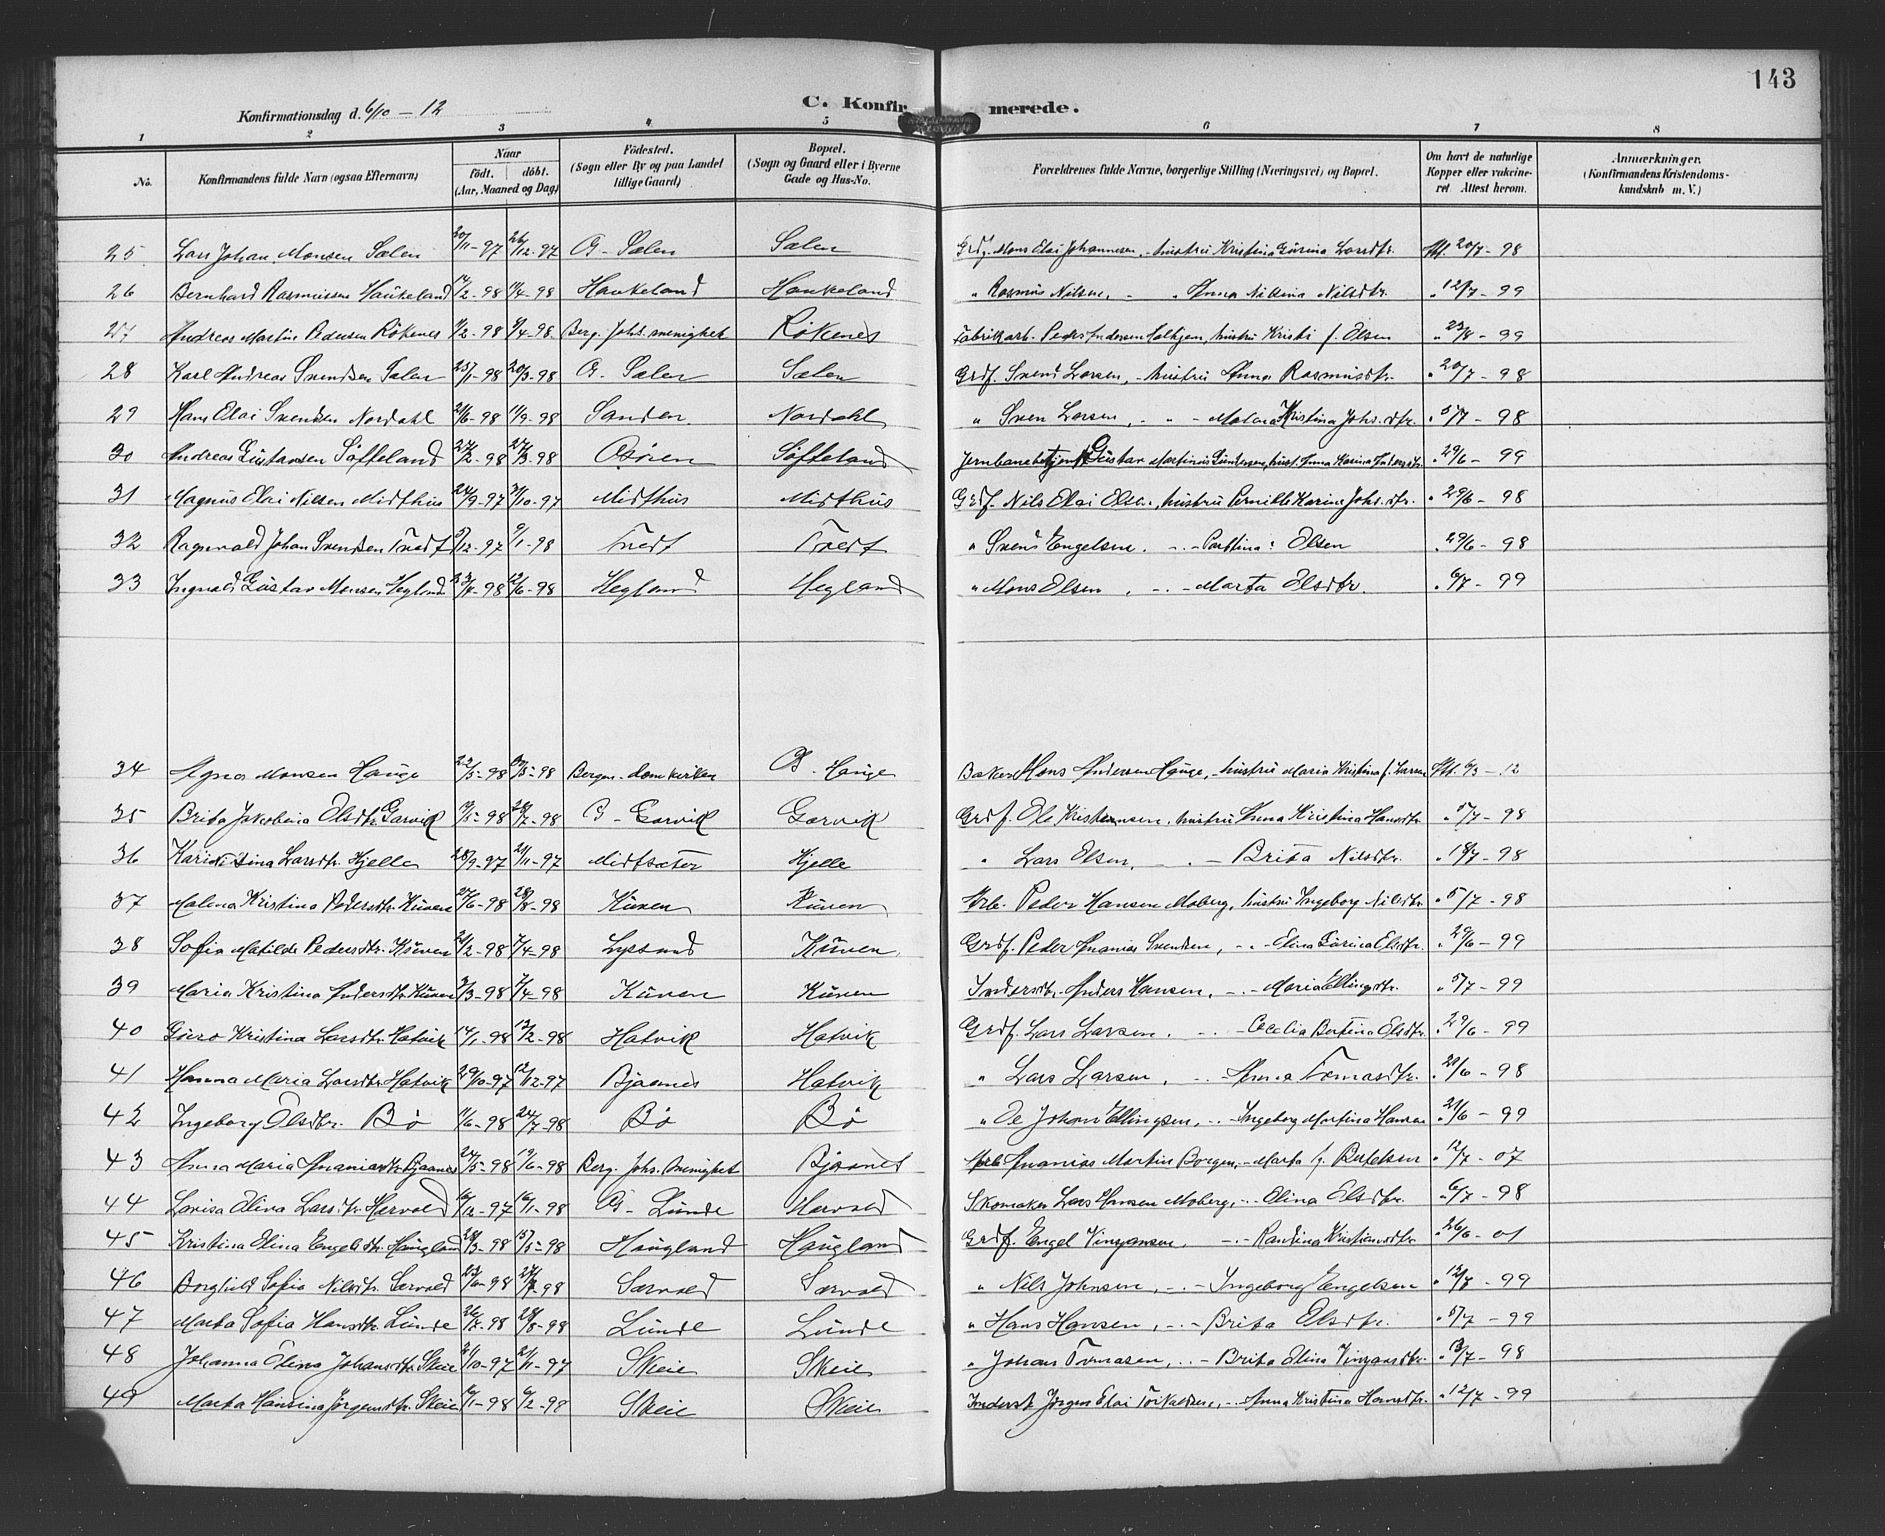 143
Konfirmationsdag d. 6/10 – 12
C. Konfirmerede.
1 2 3 4 5 6 7 8
No. Konfirmandens fulde Navn (ogsaa Efternavn) Naar født. døbt. (Aar, Maaned og Dag) Fødested. (Sogn eller By og paa Landet tillige Gaard) Bopæl. (Sogn og Gaard eller i Byerne Gade og Hus-No. Forældrenes fulde Navne, borgerlige Stilling (Næringsvei) og Bopæl. Om havt de naturlige Kopper eller vakcineret. Attest herom. Anmærkninger. (Konfirmandens Kristendomskundskab m. V.)
25 Lars Johan Monsen Sælen 20/11-97 26/12-97 Sælen Sælen Grdf. Mons Elai Johannesen, hustru Kristina Gurina Larsdtr. Att. 20/7-98
26 Bernhard Rasmussen Haukeland 17/2-98 11/4-98 Haukeland Haukeland " Rasmus Nilsen, - " Anna Nilsdtr. " 12/7-99
27 Andreas Martin Pedersen Røkenes 11/2-98 9/4-98 Berg. Johs. menighet Røkenes Fabrikarb. Peder Andersen hustru Kristi f. Olsen " 23/8-99
28 Karl Andreas Svendsen Sælen 25/1-98 20/3-98 Sælen Sælen Grdf. Svend Larsen, hustru Anna Rasmusdtr. " 20/7-98
29 Hans Elai Svendsen Nordahl 21/6-98 11/9-98 Sanden Nordahl " Sven Larsen, - " - Malena Kristina Johs.dtr. " 5/7-98
30 Andreas Gustavsen Søfteland 27/2-98 27/3-98 Osøren Søfteland Jernbanebetjent Gustav Martinus Gundersen, hust. Anna Karina Andersdtr. " 29/6-99
31 Magnus Elai Nilsen Midthus 24/9-97 31/10-97 Midthus Midthus Grdf. Nils Elai Olsen, hustru Pernille Karine Johs.dtr. " 29/6-98
32 Ragnvald Johan Svendsen Tvedt 5/12-97 9/1-98 Tvedt Tvedt " Svend Engelsen. - " - Olsen " 29/6-98
33 Ingvald Gustav Monsen Hegland 23/4-98 12/6-98 Hegland Hegland " Mons Olsen, - " - Marta Olsdtr. " 6/7-99
34 Agnes Monsen Hauge 22/5-98 Bergen-domkirken Hauge Baker Mons Andersen Hauge, hustru Maria Kristina f. Larsen Att. 6/3-12
35 Brita Jakobina Olsdtr. Garvik 19/5-98 28/7-98 Garvik Garvik Grdf. Ole Kristensen, hustru Anna Kristina Hansdtr. " 5/7-98
36 Larsdtr. Hjelle 28/9-97 21/11-97 Midtsæter Hjelle " Lars Olsen, - " - Brita Nilsdtr. " 18/7-98
37 Malena Kristina Pedersdtr. Kuven 27/6-98 28/8-98 Kuven Kuven Arb. Peder Hansen Moberg, hustru Ingeborg Nilsdtr. " 5/7-98
38 Sofia Matilde Pedersdtr. Kuven 21/2-98 7/4-98 Lysand Kuven Grdf. Peder Ananias Svendsen, - " - Elina Gurina Elsdtr. " 29/6-99
39 Maria Kristina Andersdtr. Kuven 3/3-98 7/4-98 Kuven Kuven Anders Hansen, - " - Maria Ellingsdtr. " 5/7-99
40 Guro Kristina Larsdtr. Hatvik 14/1-98 13/2-98 Hatvik Hatvik Grdf. Lars Larsen. - " - Cecelia Bertina Olsdtr. " 29/6-99
41 Hanna Maria Larsdtr. Hatvik 29/10-97 12/12-97 Bjaanes Hatvik " Lars Larsen, - " - Anna Tomasdtr. " 21/6-98
42 Ingeborg Olsdtr. Bø 11/6-98 24/7-98 Bø Bø " Ole Johan Ellingsen, - " - Ingeborg Martina Hansen " 21/6-99
43 Anna Maria Ananiasdtr. Bjaanes 24/5-98 19/6-98 Berg. Johs. menighet Bjaanes Arb. Ananias Martin Borgen, - " - Marta " 12/7-07
44 Lovisa Olina Larsdtr. Hervold 10/12-97 16/1-98 Lunde Hervold Skomaker Lars Hansen Moberg, - " - Olina Olsdtr. " 6/7-98
45 Kristina Elina Engelsdtr. Haugland 28/3-98 15/5-98 Haugland Haugland Grdf. Engel Vinjansen, - " - Randina Kristiansdtr. " 26/6-01
46 Borghild Sofia Nilsdtr. Særvold 98 98 Særvold Særvold " Nils Johnsen, - " - Ingeborg Engelsen " 12/7-99
47 Marta Sofia Hansdtr. Lunde 98 28/8-98 Lunde Lunde " Hans Hansen, - " - Brita Olsdtr. " 5/7-99
48 Johanna Olina Johansdtr. Skeie 21/10-97 21/11-97 Skeie Skeie " Johan Tomasen, - " - Brita Elina Vinjansdtr. " 13/7-98
49 Marta Hansina Jørgensdtr. Skeie 10/1-98 6/2-98 Skeie Skeie Jørgen Elai Torkelsen, - " - Anna Kristina Hansdtr. " 12/7-99